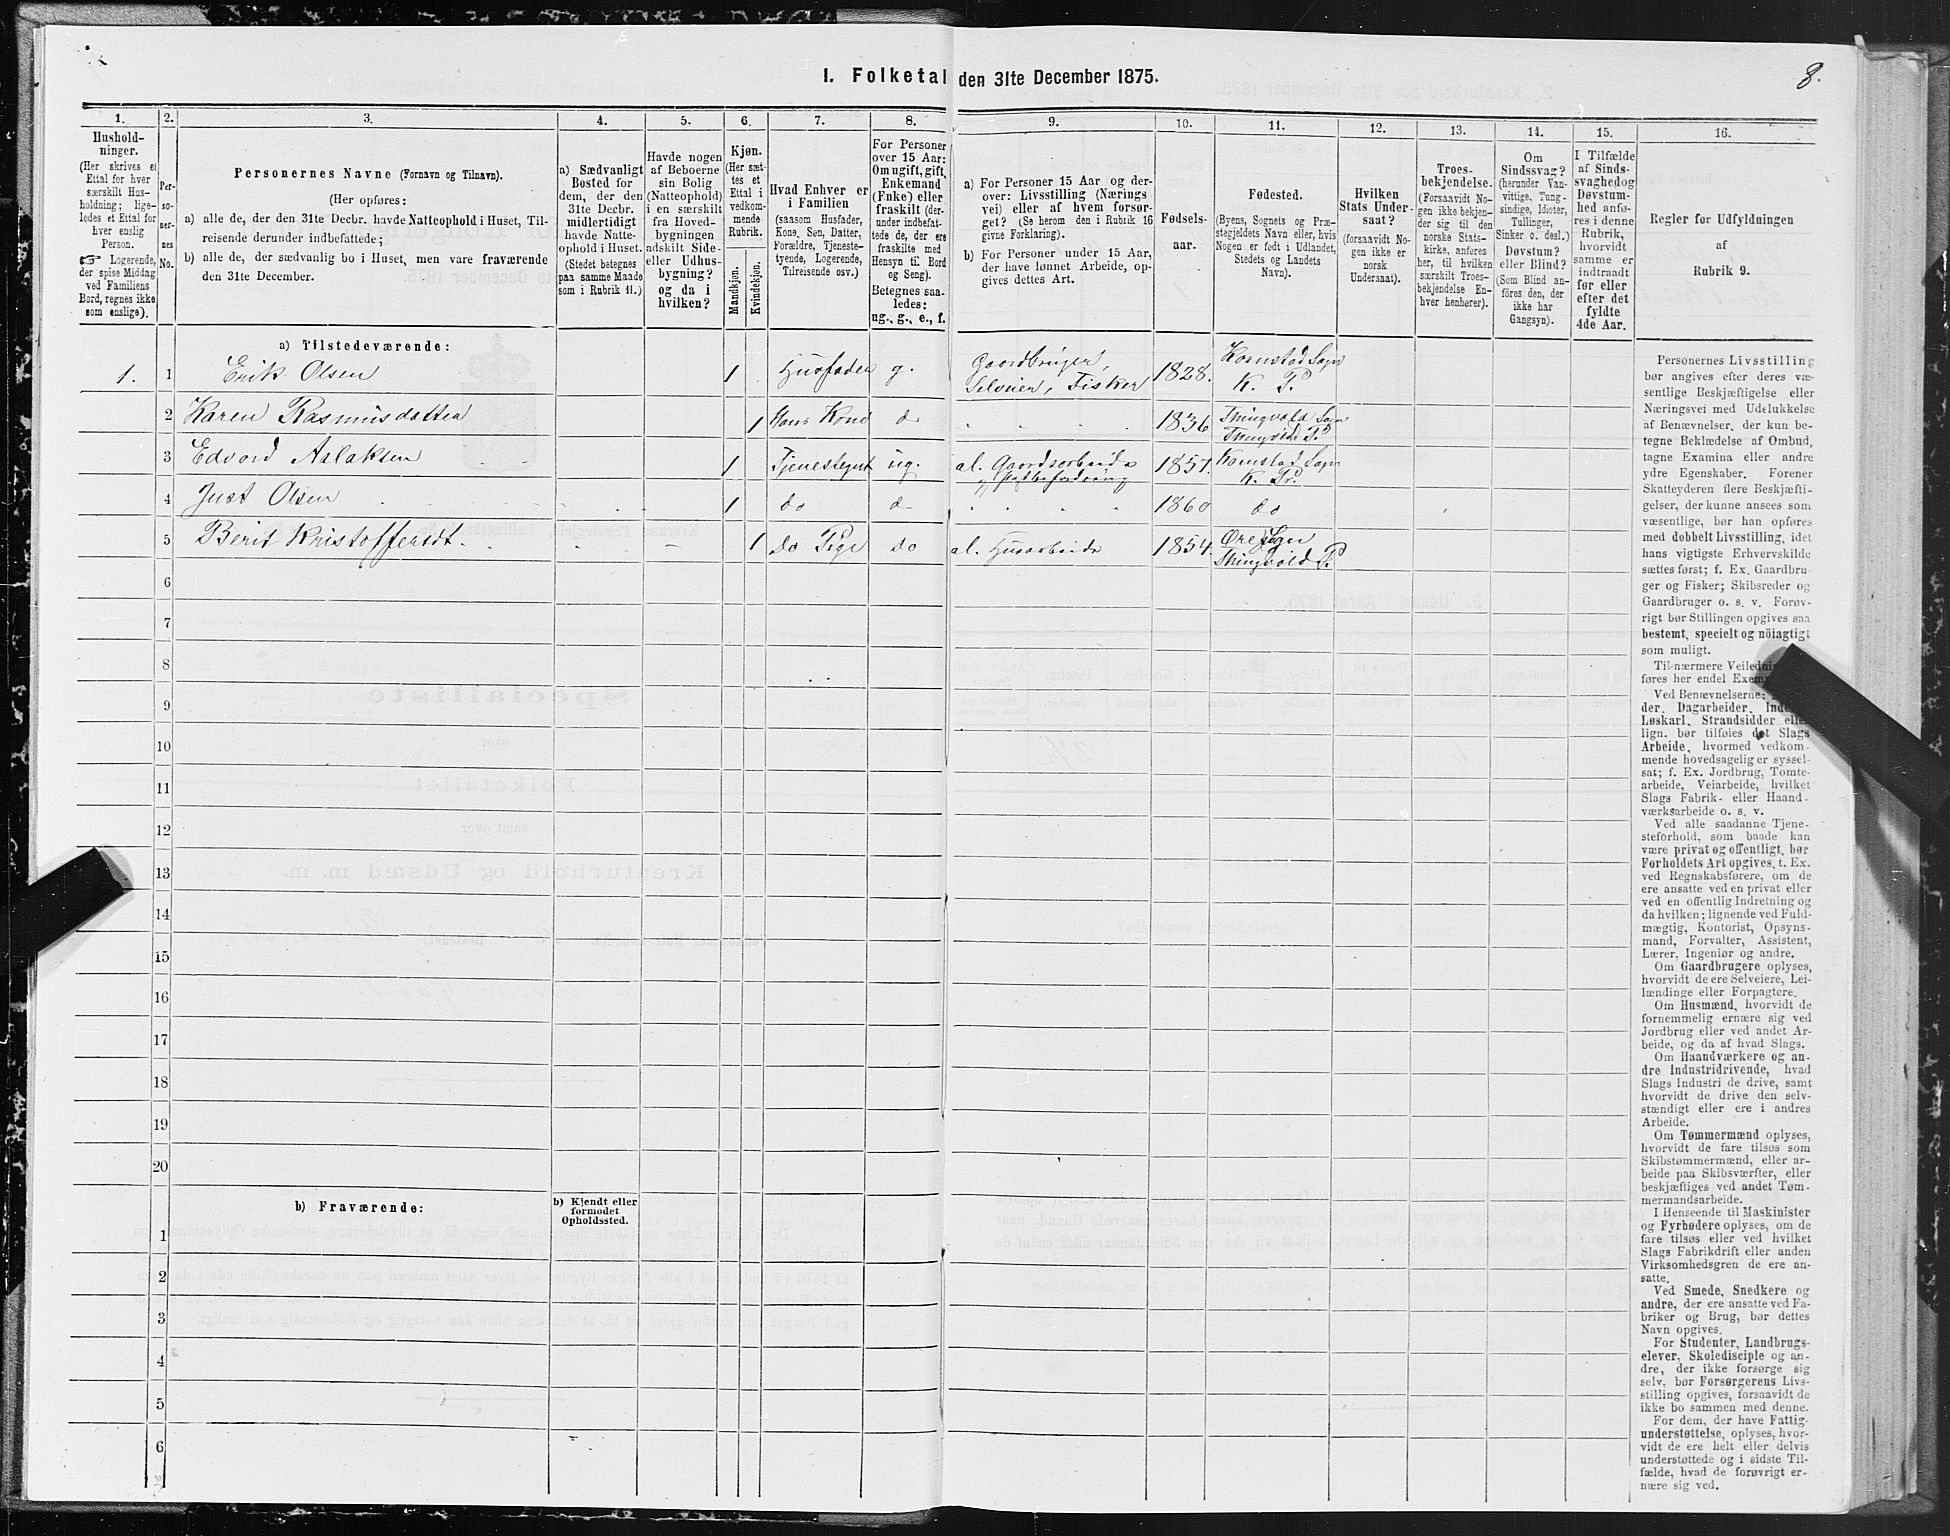 1. Folketal den 31te December 1875.
8.
1.
2.
3.
4.
5.
6.
7.
8.
9.
10.
11.
12.
13.
14.
15.
16.
Hushold-
ninger.
(Her skrives et
Ettal for hver
særskilt Hus-
holdning; lige-
ledes et Ettal for
hver enslig
Person.
☞ Logerende,
der spise Middag
ved Familiens
Bord, regnes ikke
som enslige).
Per-
so-
ner-
nes
No.
Personernes Navne (Fornavn og Tilnavn).
(Her opføres:
a) alle de, der den 31te Decbr. havde Natteophold i Huset, Til-
reisende derunder indbefattede;
b) alle de, der sædvanlig bo i Huset, men vare fraværende
den 31te December.
a) Sædvanligt
Bosted for
dem, der den
31te Decbr.
midlertidigt
havde Natte-
ophold i Huset.
(Stedet betegnes
paa samme Maade
som i Rubrik 11.)
Havde nogen
af Beboerne
sin Bolig
(Natteophold)
i en særskilt
fra Hoved-
bygningen
adskilt Side-
eller Udhus-
bygning?
og da i
hvilken?
Kjøn.
(Her sæt-
tes et
Ettal i
vedkom-
mende
Rubrik.
Mandkjøn.
Kvindekjøn.
Hvad Enhver er
i Familien
(saasom Husfader,
Kone, Søn, Datter,
Forældre, Tjeneste-
tyende, Logerende,
Tilreisende osv.)
For Personer
over 15 Aar:
Om ugift, gift,
Enkemand
(Enke) eller
fraskilt (der-
under indbefat-
tede de, der ere
fraskilte med
Hensyn til Bord
og Seng).
Betegnes saa-
ledes:
ug., g., e., f.
a) For Personer 15 Aar og der-
over: Livsstilling (Nærings
vei) eller af hvem forsør-
get? (Se herom den i Rubrik 16
givne Forklaring).
b) For Personer under 15 Aar,
der have lønnet Arbeide, op-
gives dettes Art.
Fødsels-
aar.
Fødested.
(Byens, Sognets og Præ-
stegjeldets Navn eller, hvis
Nogen er født i Udlandet,
Stedets og Landets
Navn).
Hvilken
Stats Under-
saat?
(forsaavidt No-
gen ikke er
norsk
Undersaat).
Troes-
bekjendelse.
(Forsaavidt No-
gen ikke bekjen-
der sig til den
norske Stats-
kirke, anføres
her, til hvilken
særskilt Troes-
bekjendelse En-
hver henhører).
Om
Sindssvag?
(herunder Van-
vittige, Tung-
sindige, Idioter,
Tullinger,
Sinker o. desl.)
Døvstum?
eller Blind?
(Som Blind an-
føres den, der
ikke har
Gangsyn).
I Tilfælde
af Sinds-
svaghed og
Døvstum-
hed anfø-
res i denne
Rubrik,
hvorvidt
samme er
indtraadt
før eller
efter det
fyldte
4de Aar.
Regler for Udfyldningen
af
Rubrik 9.
a) Tilstedeværende:
1. 1 Erik Olsen 1 Husfader g. Gaardbruger, Selveier, Fisker 1828. Kornstad Sogn K. P.
2 Karen Rasmusdatter 1 Hans Kone do 1836 Thingvold Sogn Thingvold P.
3 Edvard Aslaksen 1 Tjenestegut ug. al. Gaardsarbeide 1857. Kornstad Sogn K. Pr.
4 Just Olsen 1 do do 1860 do
5 Berit Kristoffersdt. 1 do Pige do al. Husarbeide 1854. Øre Sogn Thingvold P.
6
7
8
9
10
11
12
13
14
15
16
17
18
19
20
b) Fraværende:
b) Kjendt eller
formodet
Opholdssted.
1
2
3
4
5
6
Personernes Livsstilling
bør angives efter deres væ-
sentlige Beskjæftigelse eller
Næringsvei med Udelukkelse
af Benævnelser, der kun be-
tegne Beklædelse af Ombud,
tagne Examina eller andre
ydre Egenskaber. Forener
Skatteyderen flere Beskjæfti-
gelser, der kunne ansees som
væsentlige, bør han opføres
med dobbelt Livsstilling, idet
hans vigtigste Erhvervskilde
sættes først; f. Ex. Gaardbru-
ger og Fisker; Skibsreder og
Gaardbruger o. s. v. Forøv-
rigt bør Stillingen opgives saa
bestemt, specielt og nøiagtigt
som muligt.
Til nærmere Veiledning
føres her endel
Ved Benævnelserne:
der, Dagarbeider,
Løskarl, Strandsidder eller
lign. bør tilføies det Slags
Arbeide, hvormed vedkom-
mende hovedsagelig er syssel-
sat; f. Ex. Jordbrug, Tomte-
arbeide, Veiarbeide, hvilket
Slags Fabrik- eller Haand-
værksarbeide o. s. v.
Ved alle saadanne Tjene-
steforhold, som baade kan
være privat og offentligt, bør
Forholdets Art opgives, t. Ex.
ved Regnskabsførere, om de
ere ansatte ved en privat eller
ved en offentlig Indretning og
da hvilken; lignende ved Fuld-
mægtig, Kontorist, Opsyns-
mand, Forvalter, Assistent,
Lærer, Ingeniør og andre.
Om Gaardbrugere oplyses,
hvorvidt de ere Selveiere, Lei-
lændinge eller Forpagtere.
Om Husmænd, hvorvidt de
fornemmelig ernære sig ved
Jordbrug eller ved andet Ar-
beide, og da af hvad Slags.
Om Haandværkere og an-
dre Industridrivende, hvad
Slags Industri de drive, samt
hvorvidt de drive den selv-
stændigt eller ere i andres
Arbeide.
Om Tømmermænd oplyses,
hvorvidt de fare tilsøs som
Skibstømmermænd, eller ar-
beide paa Skibsværfter, eller
beskjæftiges ved andet Tøm-
mermandsarbeide.
I Henseende til Maskinister
og Fyrbødere oplyses, om de
fare tilsøs eller ved hvilket
Slags Fabrikdrift eller anden
Virksomhedsgren de ere an-
satte.
Ved Smede, Snedkere og
andre, der ere ansatte ved Fa-
briker og Brug, bør dettes
Navn opgives.
For Studenter, Landbrugs-
elever, Skoledisciple og an-
dre, der ikke forsørge sig
selv, bør Forsørgerens Livs-
stilling opgives, forsaavidt de
ikke bo sammen med denne.
For dem, der have Fattig-
understøttelse, oplyses, hvor-
vidt de ere helt eller delvis
understøttede og i sidste Til-
fælde, hvad de forøvrigt er-
nære sig ved.